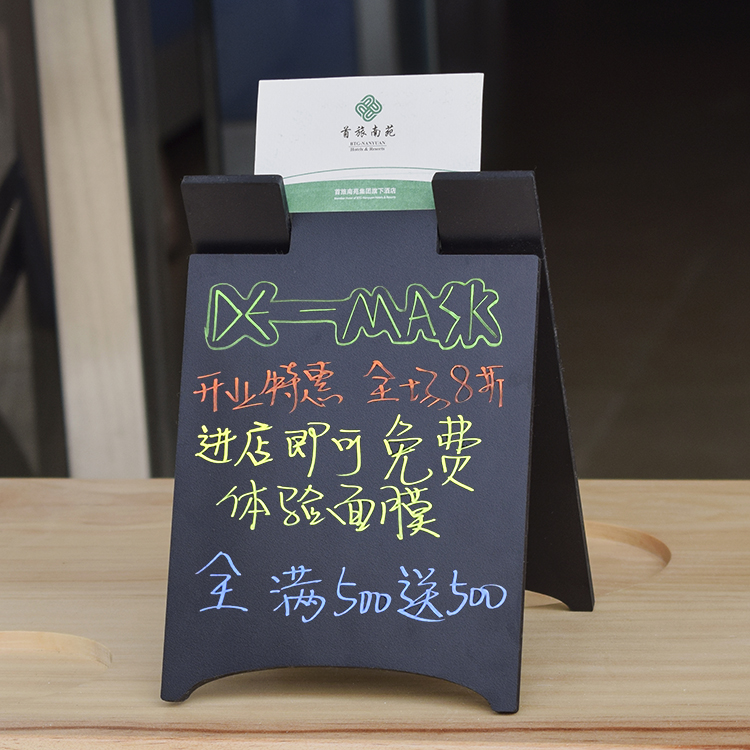 首旅南苑
BTG-NANYUAN
Hotels & Resorts
首旅南苑集团旗下酒店
DE-MASK
开业特惠 全场8折
进店即可免费
体验面膜
全 满500送500